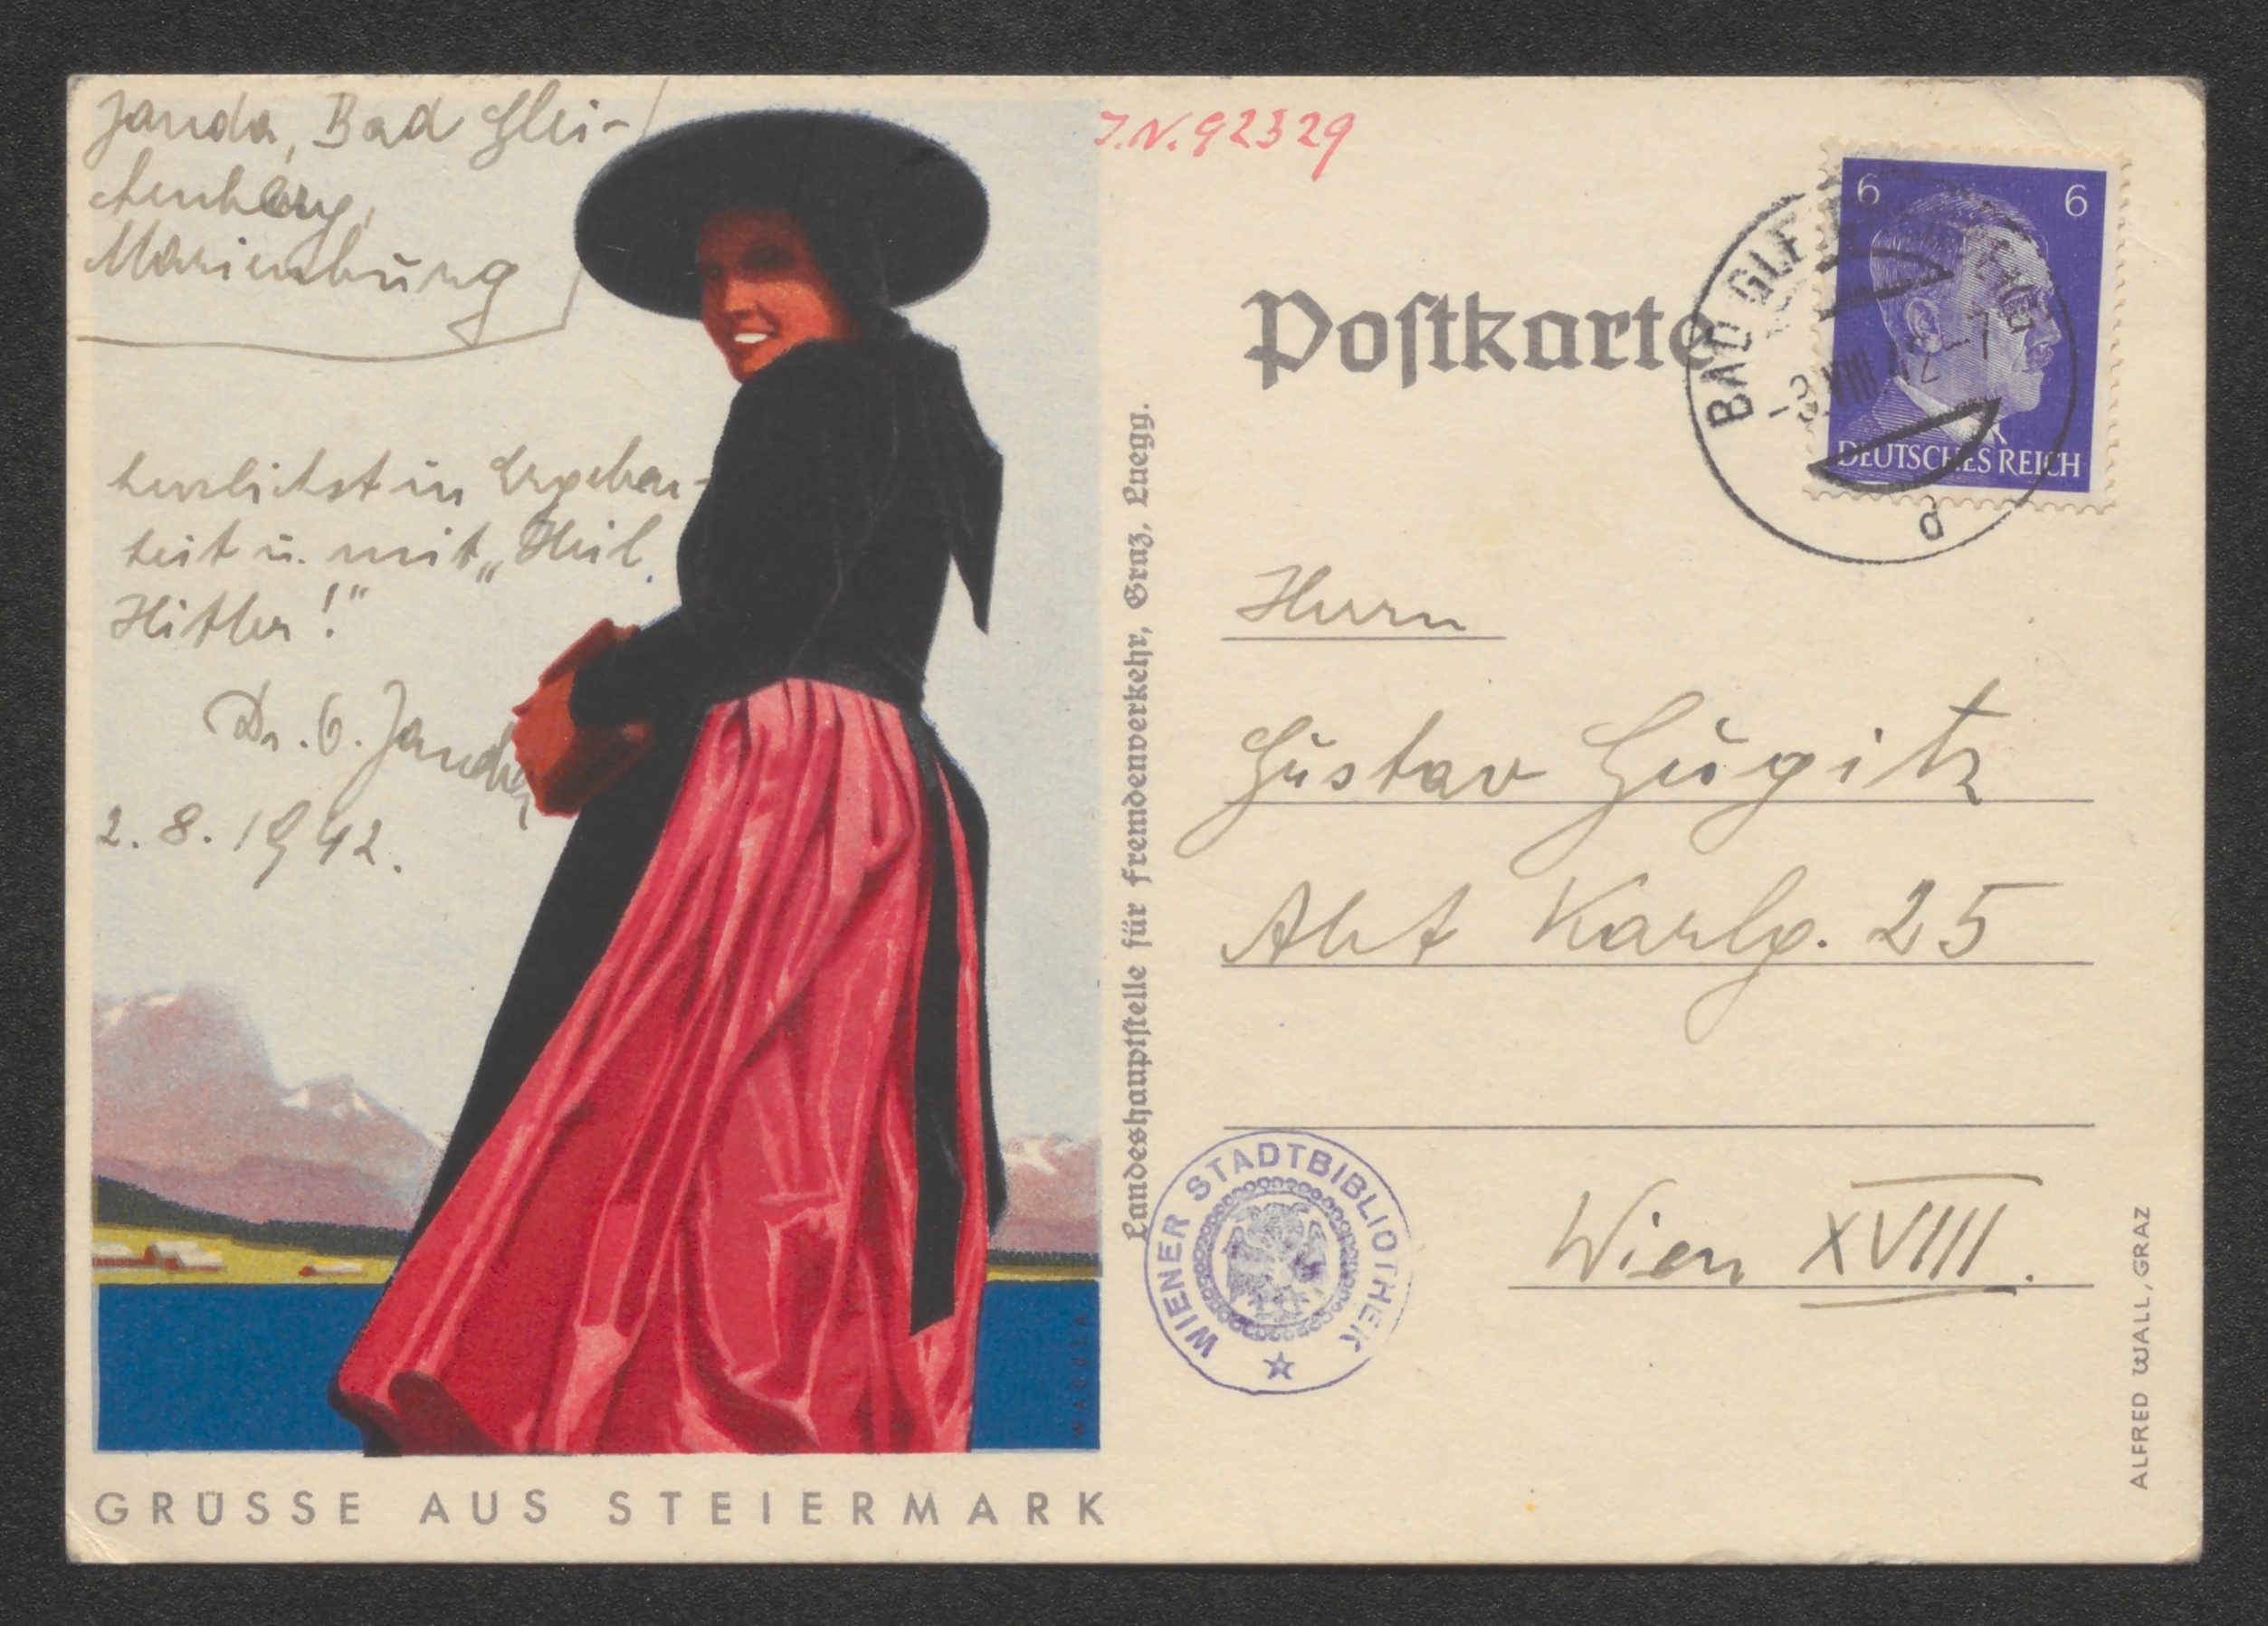 Janda, Bad Glei-
chenberg,
Marienburg
herzlichst in Ergeben-
heit u. mit „Heil
Hitler!“
Dr. E. Janda
2. 8. 1942.
GRÜSSE AUS STEIERMARK
Landeshauptstelle für Fremdenverkehr, Graz, Luegg.
I.N. 92329
Postkarte
6 6
DEUTSCHES REICH
BAD GLEICHENBERG
-3.VIII.42-7
a
Herrn
Gustav Gugitz
Abt Karlg. 25
Wien XVIII.
WIENER STADTBIBLIOTHEK
ALFRED WALL, GRAZ